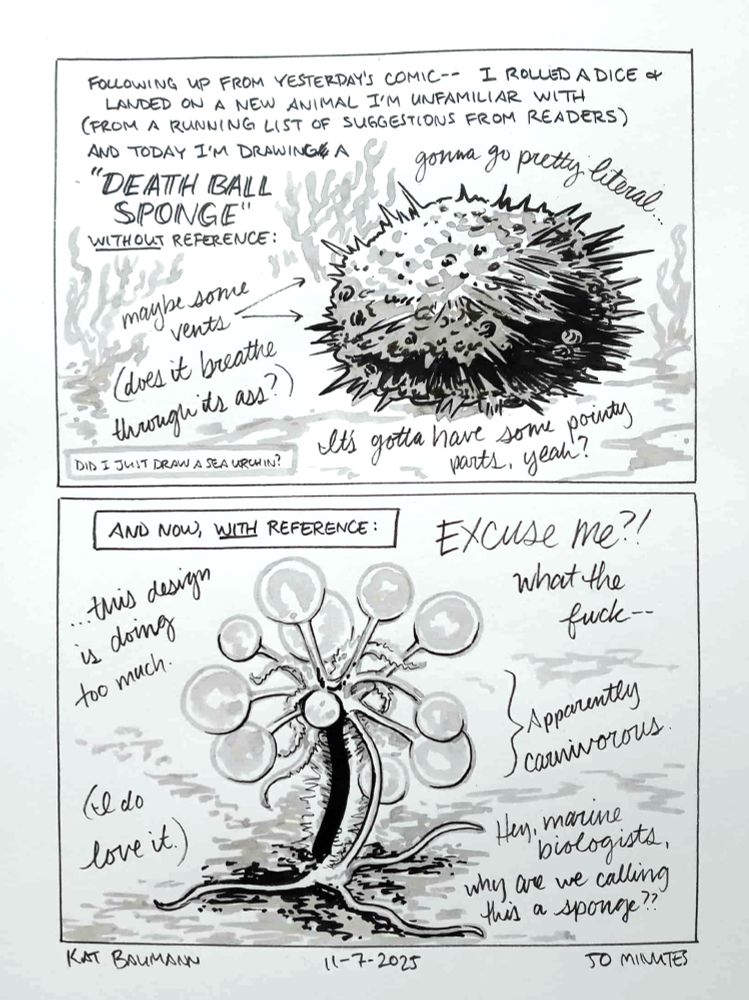 FOLLOWING UP FROM YESTERDAY'S COMIC-- I ROLLED A DICE &
LANDED ON A NEW ANIMAL I'M UNFAMILIAR WITH
(FROM A RUNNING LIST OF SUGGESTIONS FROM READERS)
AND TODAY I'M DRAWING A
"DEATH BALL
SPONGE"
WITHOUT REFERENCE:
gonna go pretty literal...
maybe some
vents
(does it breathe
through its ass?)
It's gotta have some pointy
parts, yeah?
DID I JUST DRAW A SEA URCHIN?
AND NOW, WITH REFERENCE:
EXCUSE me?!
what the
fuck--
...this design
is doing
too much.
Apparently
carnivorous.
(I do
love it.)
Hey, marine
biologists,
why are we calling
this a sponge??
KAT BAUMANN
11-7-2025
50 MINUTES